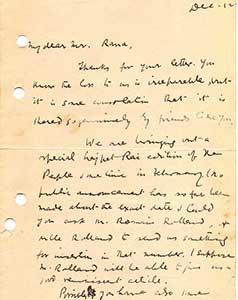 Dec. 12
My dear Mr. Rana,
Thanks for your letter. You
know the loss to us is irreparable but
it is some consolation that it is
shared so genuinely by friends like you.
We are bringing out a
special Lajpat Rai edition of the
People sometime in February (no
public announcement has so far been
made about the exact date). Could
you ask M. Romain Rolland, &
Mlle Rolland to send us something
for insertion in that number. I suppose
M. Rolland will be able to give us a
good reminiscent article.
you have also some